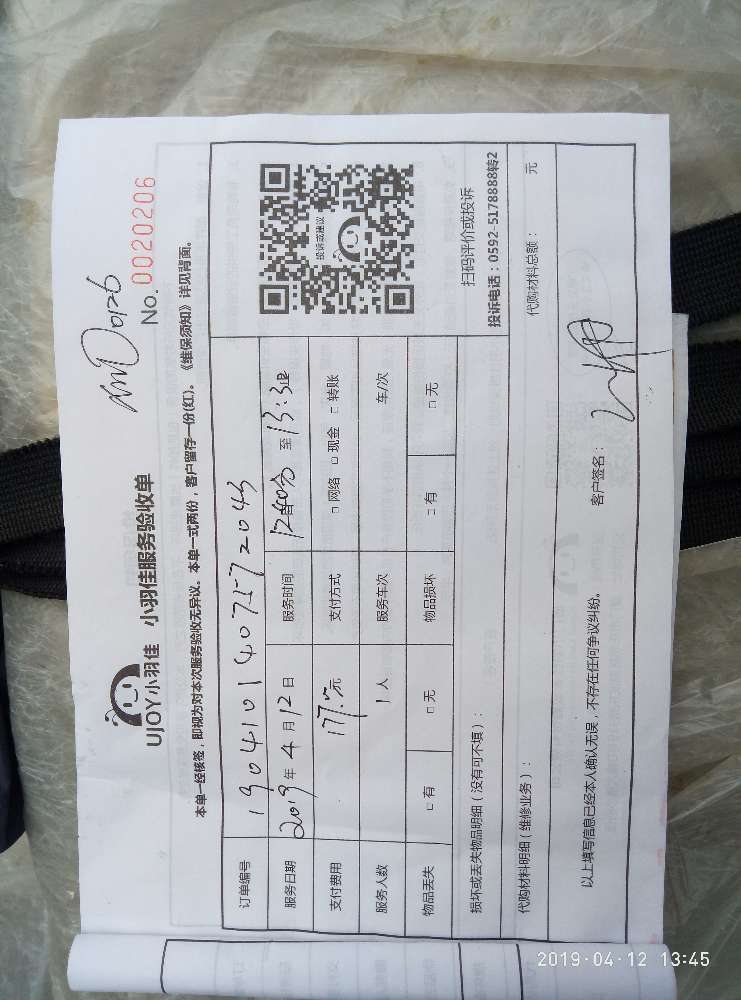 UJOY小羽佳 小羽佳服务验收单
No. 0020206
本单一经核签，即视为对本次服务验收无异议。本单一式两份，客户留存一份(红)。《维保须知》详见背面。
订单编号 1904101407572043
服务日期 2019年4月12日 服务时间 至 13:30
支付费用 177.元 支付方式 □网络 □现金 □转账
服务人数 1人 服务车次 车/次
物品丢失 □有 □无 物品损坏 □有 □无
投诉或建议
扫码评价或投诉
投诉电话：0592-5178888转2
损坏或丢失物品明细（没有可不填）：
代购材料明细（维修业务）： 代购材料总额： 元
以上填写信息已经本人确认无误，不存在任何争议纠纷。 客户签名：
2019·04·12 13:45